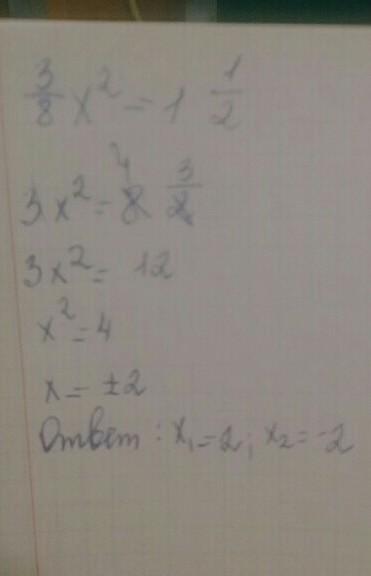 3/8 x² = 1 1/2
3x² = 8⁴ 3/2
3x² = 12
x² = 4
x = ±2
Ответ: x₁ = 2; x₂ = -2